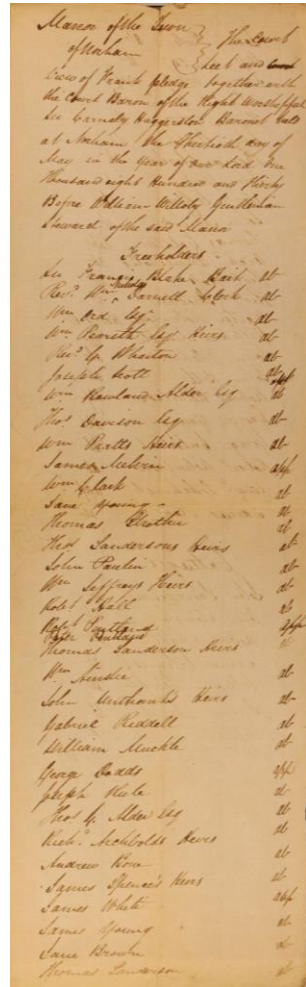 Manor of the Town } The Court
of Norham } Leet and
View of Frank pledge together with
the Court Baron of the Right Worshipful
Sir Carnaby Haggerston Baronet held
at Norham the Thirtieth day of
May in the Year of our Lord One
Thousand eight Hundred and Thirty
Before William Willoby Gentleman
Steward of the said Manor
Freeholders
Sir Francis Blake Bart ab
Revd. Wm Darnell Clerk ab
Wm Ord Esq. ab
Wm Esq Heirs ab
Revd. G. Wharton ab
Joseph Scott ab
Wm Rowland Alder Esq ab
Thos Davison Esq ab
Wm Pratts Heirs ab
James Melvin app
Wm Clark ab
Jane Young ab
Thomas ab
Thos Sandersons Heirs ab
John Paulin ab
Wm Jeffreys Heirs ab
Robt Hall ab
Robt app
Thomas Sanderson Heirs
Wm Ainslie ab
John Unthanks Heirs ab
Gabriel Riddell ab
William Muckle ab
George Dodds app
Joseph ab
Thos G. Alder Esq ab
Richd. Archbolds Heirs ab
Andrew ab
James Spence's Heirs ab
James White app
James Young ab
Jane Brown ab
Thomas Sanderson ab